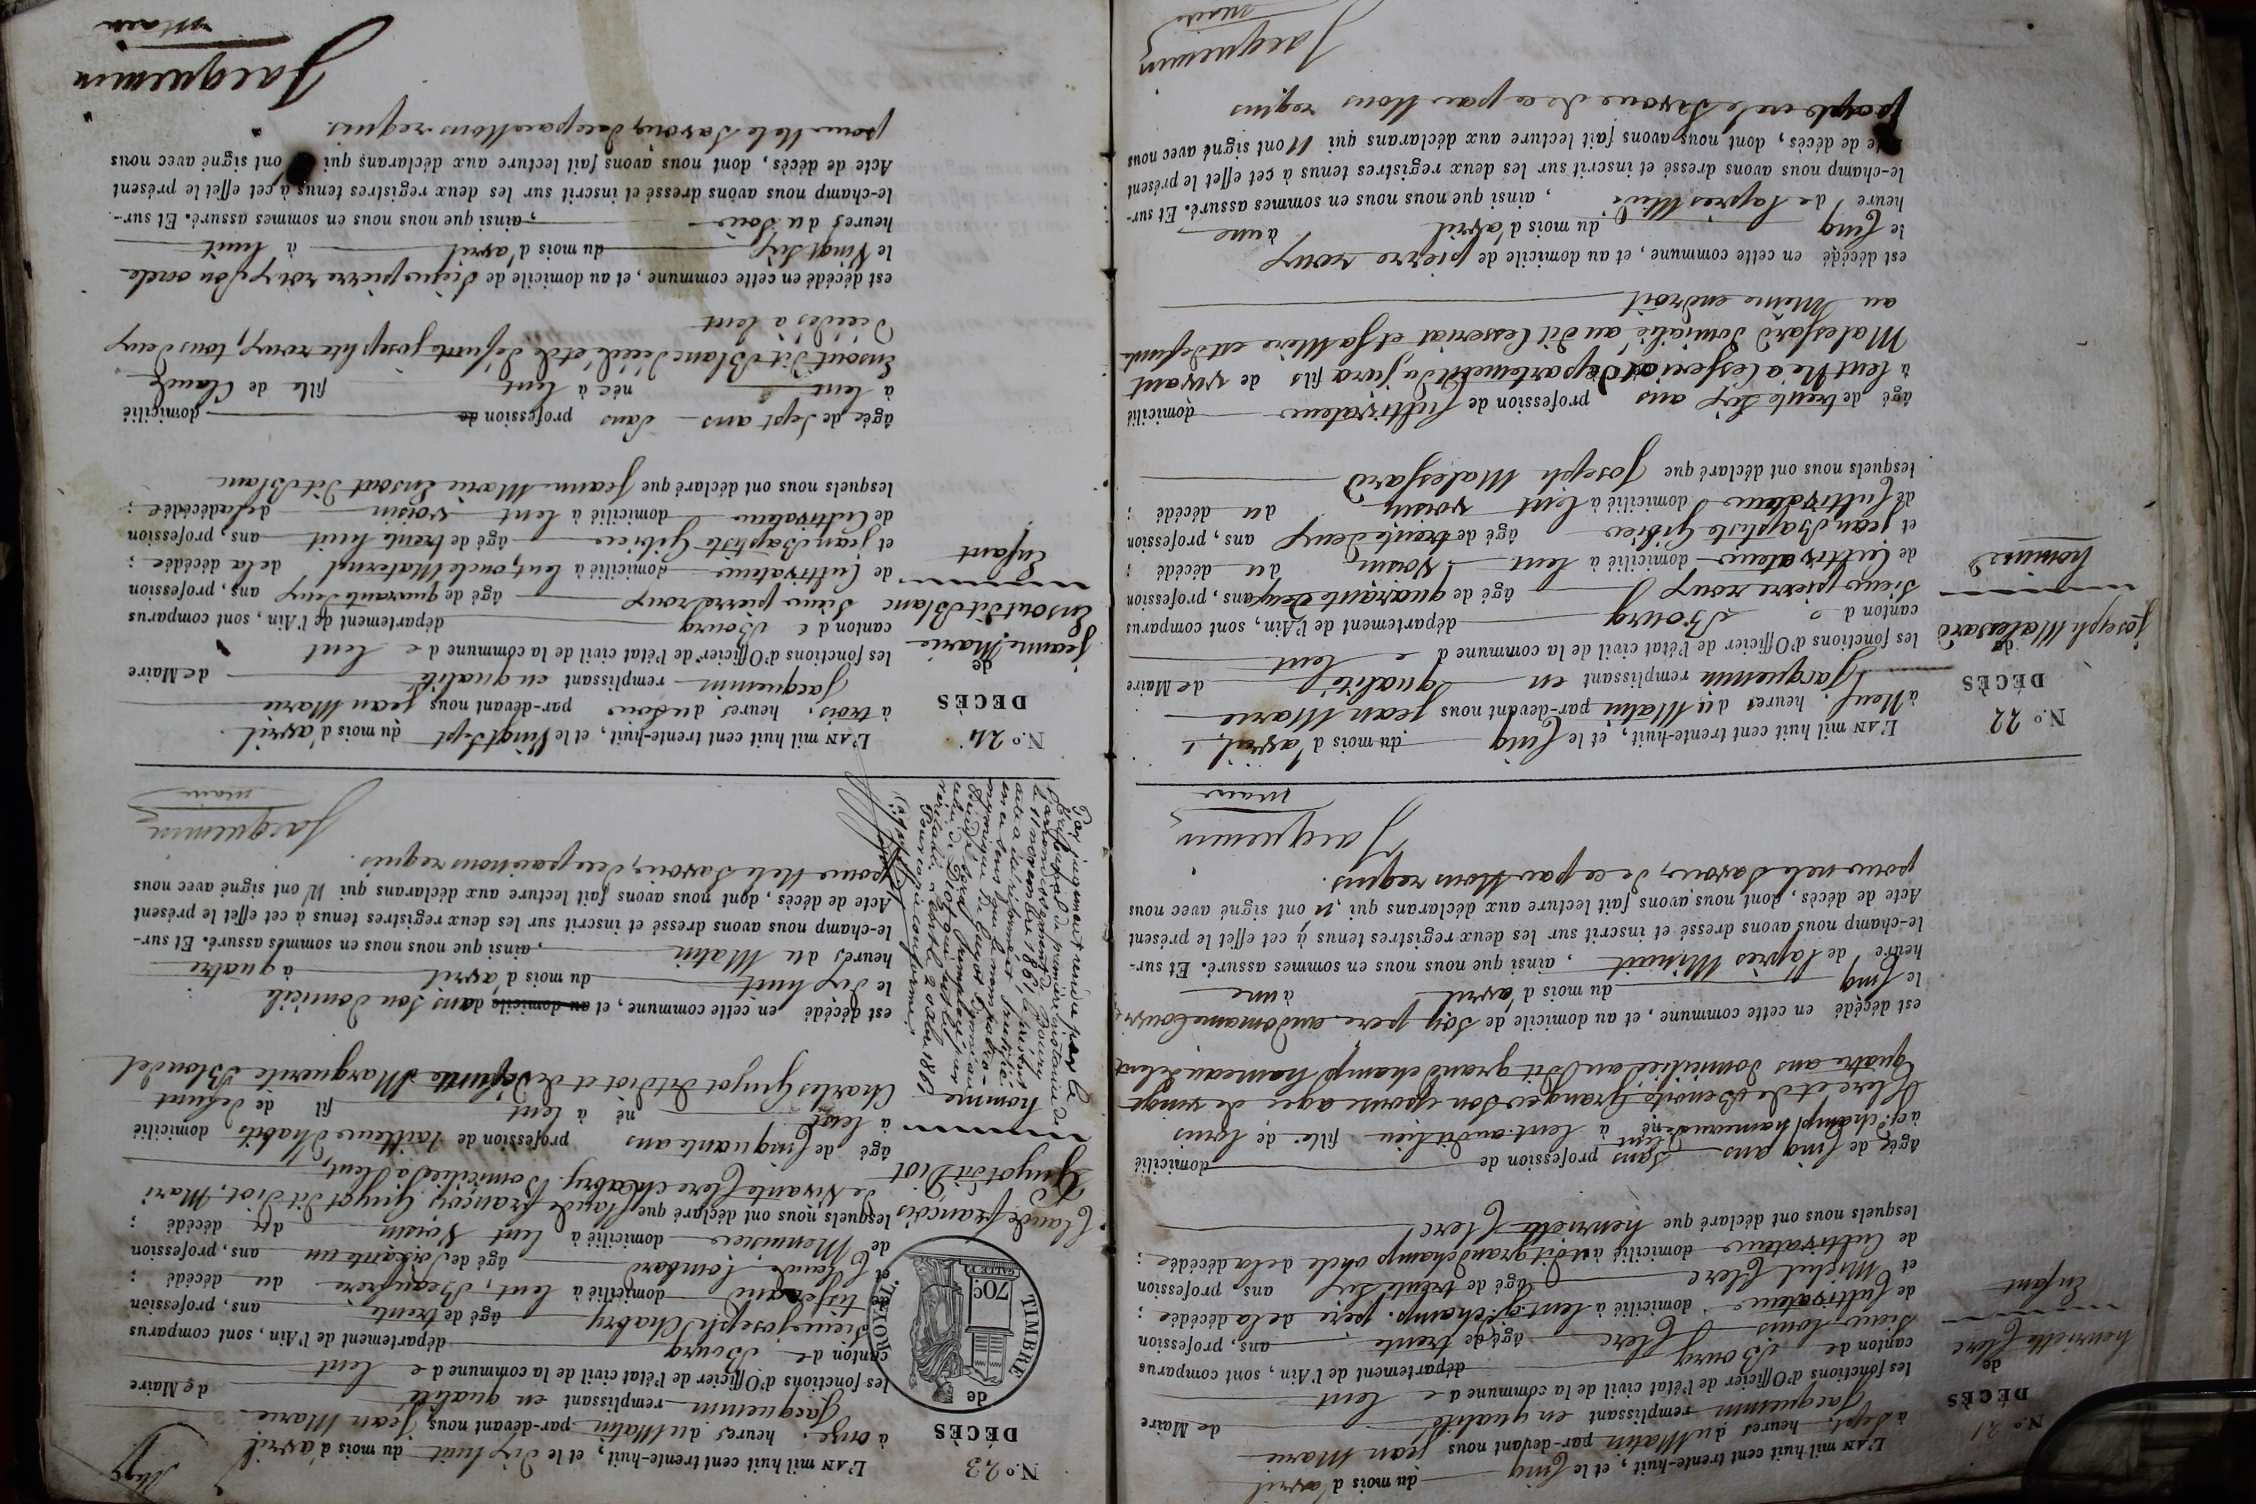 N.º 21
DÉCÈS
de
henriette Clerc
Enfant
L'AN mil huit cent trente-huit, et le Cinq du mois d'avril
à sept heures du Matin par-devant nous jean Marie
Jacquemin remplissant en qualité de Maire
les fonctions d'Officier de l'état civil de la commune de Lent
canton de Bourg département de l'Ain, sont comparus
Sieur Louis Clerc âgé de trente ans, profession
de Cultivateur domicilié à Lent, champ. père de la décédée ;
et Michel Clerc âgé de trente six ans, profession
de Cultivateur domicilié à dit grandchamp oncle de la décédée ;
lesquels nous ont déclaré que henriette Clerc
âgée de Cinq ans Sans profession de domicilié
à champ hameau de Lent né à Lent audit lieu fille de Louis
Clerc et de Benoite Granger son épouse agée de vingt
quatre ans domiciliée au dit grand champ hameau de Lent
est décédé en cette commune, et au domicile de Son père
le Cinq du mois d'avril à une
heure de l'après Minuit, ainsi que nous nous en sommes assuré. Et sur-
le-champ nous avons dressé et inscrit sur les deux registres tenus à cet effet le présent
Acte de décès, dont nous avons fait lecture aux déclarans qui n'ont signé avec nous
pour ne le Savoir de ce par Nous requis.
Jacquemin
maire
N.º 22
DÉCÈS
de
joseph Malessard
homme
L'AN mil huit cent trente-huit, et le Cinq du mois d'avril
à Neuf heures du Matin par-devant nous jean Marie
Jacquemin remplissant en qualité de Maire
les fonctions d'Officier de l'état civil de la commune de Lent
canton de Bourg département de l'Ain, sont comparus
Sieur pierre roux âgé de quarante deux ans, profession
de Cultivateur domicilié à Lent Voisin du décédé ;
et jean Baptiste Gibier âgé de trente deux ans, profession
de Cultivateur domicilié à Lent voisin du décédé ;
lesquels nous ont déclaré que joseph Malessard
âgé de trente Six ans profession de Cultivateur domicilié
à Lent Né a département du jura fils de vivant
Malessard domicilié au dit et sa Mère est défunte
au Même endroit
est décédé en cette commune, et au domicile de pierre roux
le Cinq du mois d'avril à une
heure de l'après Midi, ainsi que nous nous en sommes assuré. Et sur-
le-champ nous avons dressé et inscrit sur les deux registres tenus à cet effet le présent
Acte de décès, dont nous avons fait lecture aux déclarans qui N'ont signé avec nous
ne le Savoir de ce par Nous requis
Jacquemin
maire
N.º 23
DÉCÈS
de
TIMBRE
ROYAL
70c
Claude françois
Guyot dit Diot
homme
Par jugement rendu par le
tribunal de première instance de
l'arrondissement de Bourg
le 11 novembre 1861, le présent
acte a été rectifié
en ce sens que le nom patro-
nymique de Guyot
sera remplacé par
celui de Diot qui est le
véritable
Pour copie conforme
L'AN mil huit cent trente-huit, et le Dix huit du mois d'avril
à onze heures du Matin par-devant nous Jean Marie
Jacquemin remplissant en qualité de Maire
les fonctions d'Officier de l'état civil de la commune de Lent
canton de Bourg département de l'Ain, sont comparus
Sieur joseph Chabry âgé de trente ans, profession
de tisserand domicilié à Lent, Beaufrère du décédé ;
et Claude Lombard âgé de soixante un ans, profession
de Menuisier domicilié à Lent Voisin du décédé ;
lesquels nous ont déclaré que Claude françois Guyot dit Diot, Mari
de Vivante Clere Chabry. Domiciliée à Lent,
âgé de Cinquante ans profession de tailleur d'habits domicilié
à Lent né à Lent fil de défunt
Charles Guyot dit diot et de Défunte Marguerite Blondel
est décédé en cette commune, et au domicile dans Son domicile
le dix huit du mois d'avril à quatre
heures du Matin, ainsi que nous nous en sommes assuré. Et sur-
le-champ nous avons dressé et inscrit sur les deux registres tenus à cet effet le présent
Acte de décès, dont nous avons fait lecture aux déclarans qui N'ont signé avec nous
pour Ne le Savoir, de ce par nous requis.
Jacquemin
maire
N.º 24
DÉCÈS
de
jeanne Marie
Ensout dit Blanc
Enfant
L'AN mil huit cent trente-huit, et le Vingt Sept du mois d'avril
à trois heures du Soir par-devant nous jean Marie
Jacquemin remplissant en qualité de Maire
les fonctions d'Officier de l'état civil de la commune de Lent
canton de Bourg département de l'Ain, sont comparus
Sieur pierre roux âgé de quarante deux ans, profession
de Cultivateur domicilié à Lent, oncle Maternel de la décédée ;
et jean Baptiste Gibier âgé de trente huit ans, profession
de Cultivateur domicilié à Lent voisin de la décédée ;
lesquels nous ont déclaré que jeanne Marie Ensout dit Blanc
âgée de Sept ans Sans profession de domicilié
à Lent née à Lent fille de Claude
Ensout dit Blanc décédé et de défunte josephte roux, tous deux
Décédés à Lent
est décédée en cette commune, et au domicile de Sieur pierre roux Son oncle
le Vingt Six du mois d'avril à huit
heures du Soir, ainsi que nous nous en sommes assuré. Et sur-
le-champ nous avons dressé et inscrit sur les deux registres tenus à cet effet le présent
Acte de décès, dont nous avons fait lecture aux déclarans qui ont signé avec nous
pour Ne le Savoir, de ce par Nous requis.
Jacquemin
Maire